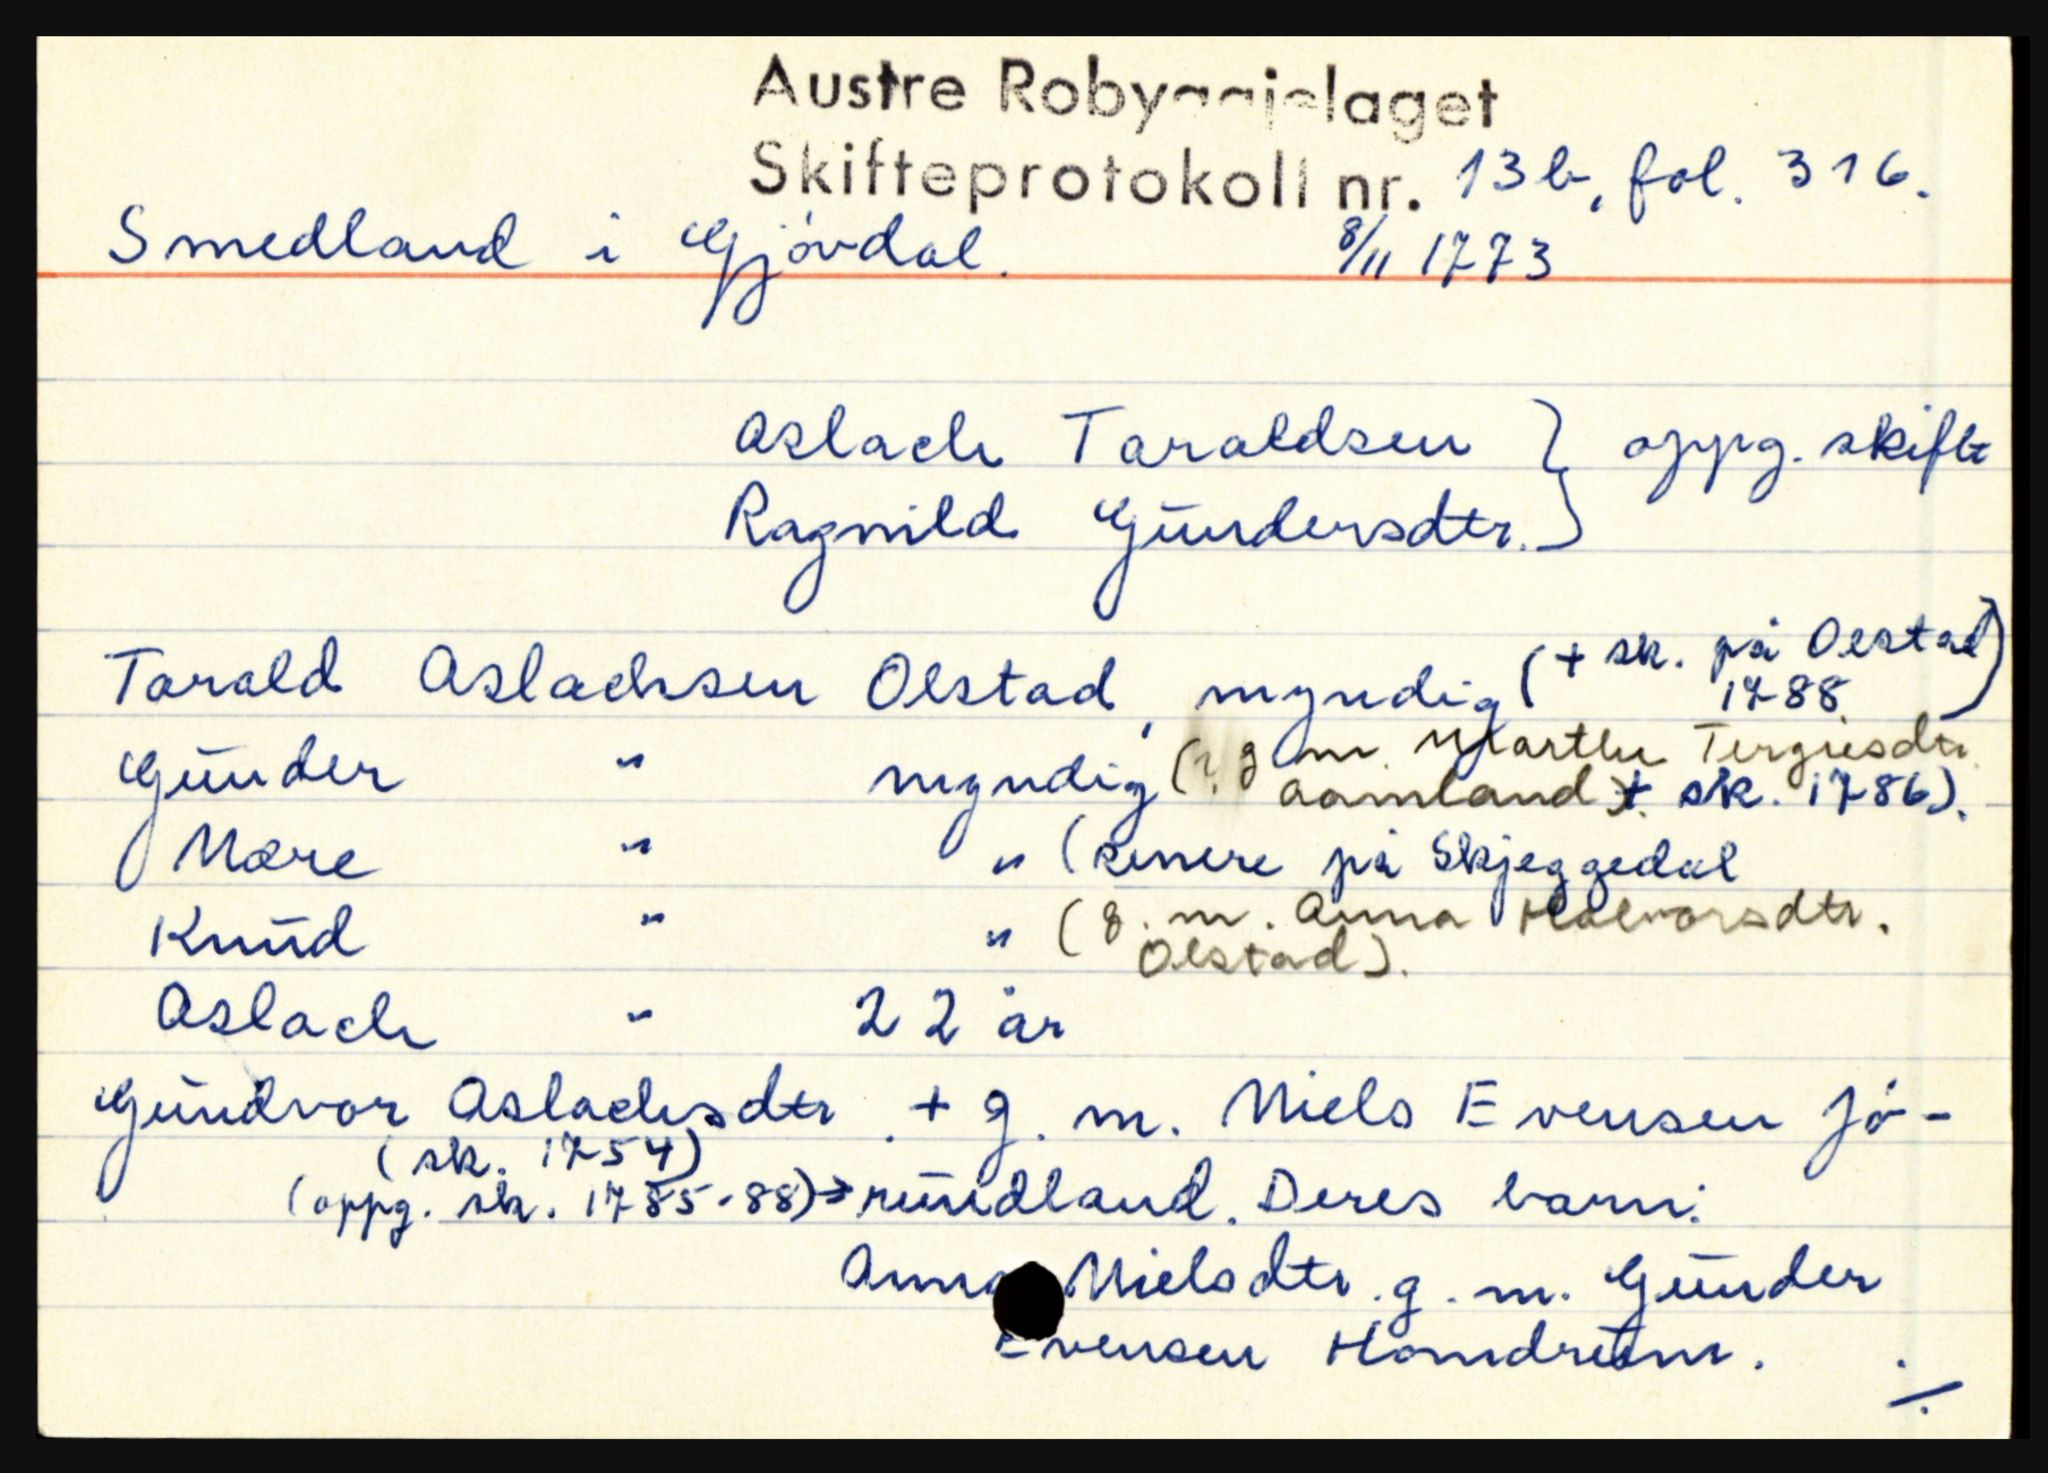 Austre Robyggjelaget
Skifteprotokoll nr. 13b, fol. 316.
Smedland i Gjövdal. 8/11 1773
Aslach Taraldsen } oppg. skifte
Ragnild Gŭndersdtr. }
Tarald Aslachsen Olstad, myndig (+ sk. på Olstad 1788)
Gŭnder " myndig (? g m. Marthe Tergiesdtr.
Aamland) + sk. 1786).
Mare " " (senere på Skjeggedal
Knŭd " " (g. m. Anna Halvorsdtr.
Olstad).
Aslach " 22 år
Gŭndvor Aslachsdtr. + g. m. Niels Evensen Jö-
(sk. 1754)
(oppg. sk. 1785-88) → rŭndland. Deres barn:
Anna Nielsdtr. g. m. Gŭnder
Evensen Homdrŭm.